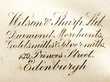 Wilson & Sharp, Ltd
Diamond Merchants,
Goldsmiths & Silversmiths,
139, Princes Street,
Edinburgh